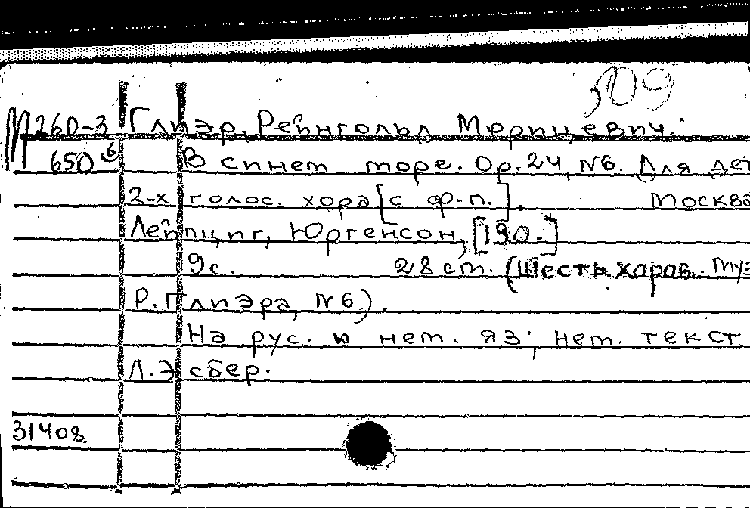 509
М260-3 Глиэр, Рейнгольд Морицевич.
650-6 В синем море. Op.24, N6. Для дет
2-х голос. хора [с ф-п.]. Москва
Лейпциг, Юргенсон, [190.-]
9с. 28 cm. (Шесть хоров. Муз
Р. Глиэра, N 6).
На рус. и нем. яз; нем. текст
Л. Эсбер.
31408